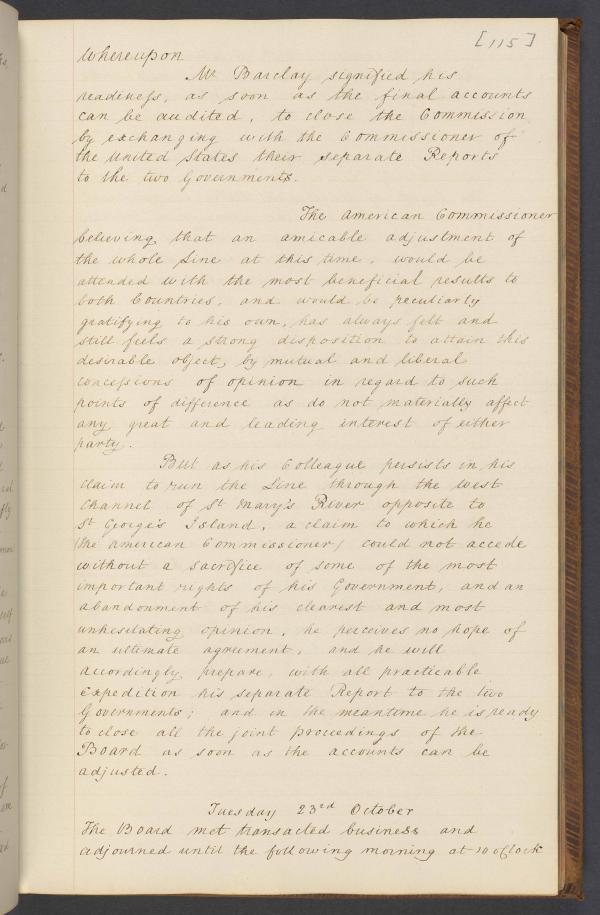 [115]
Whereupon
Mr Barclay signified his
readiness, as soon as the final accounts
can be audited, to close the Commission
by exchanging with the Commissioner of
the United States their separate Reports
to the two Governments.
The American Commissioner
believing that an amicable adjustment of
the whole Line at this time, would be
attended with the most beneficial results to
both Countries, and would be peculiarly
gratifying to his own, has always felt and
still feels a strong disposition to attain this
desirable object, by mutual and liberal
concessions of opinion in regard to such
points of difference as do not materially affect
any great and leading interest of either
party.
But as his Colleague persists in his
claim to run the Line through the west
Channel of St Mary's River opposite to
St George's Island, a claim to which he
(the American Commissioner) could not accede
without a sacrifice of some of the most
important rights of his Government, and an
abandonment of his clearest and most
unhesitating opinion, he perceives no hope of
an ultimate agreement, and he will
accordingly prepare, with all practicable
expedition his separate Report to the two
Governments; and in the meantime he is ready
to close all the joint proceedings of the
Board as soon as the accounts can be
adjusted.
Tuesday 23rd October
The Board met transacted business and
adjourned until the following morning at 10 oClock